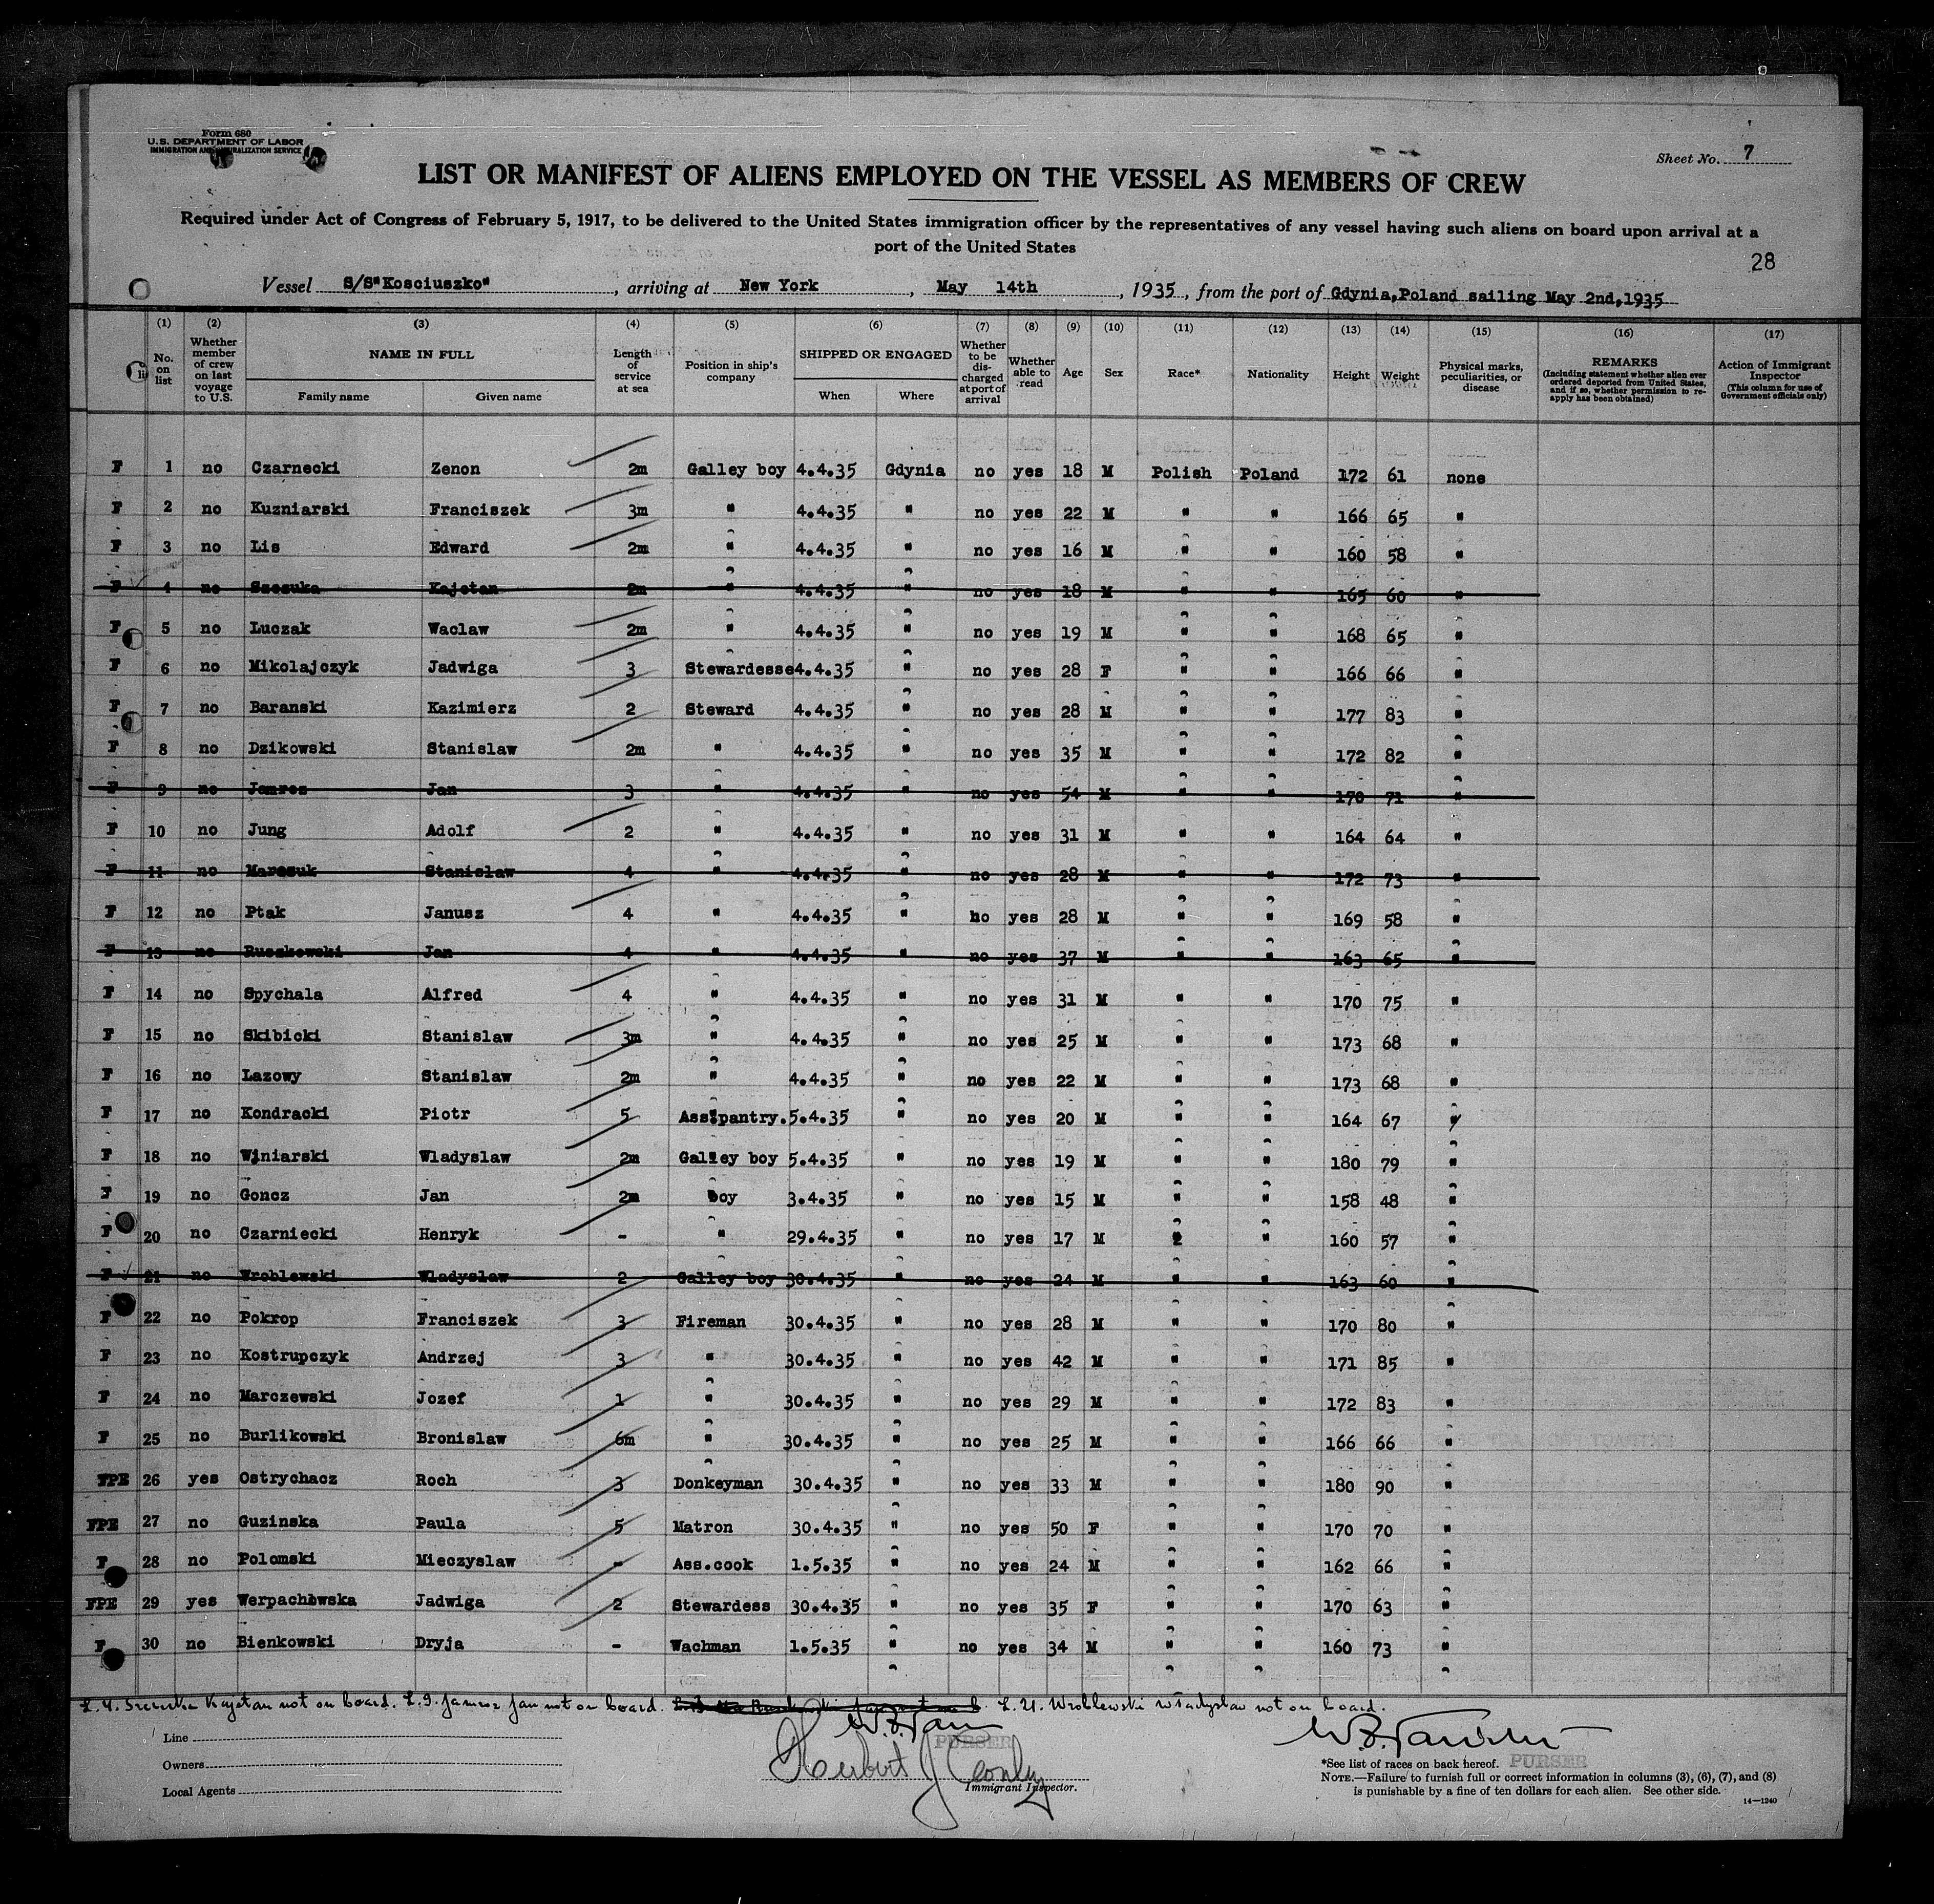 Form 680
U.S. DEPARTMENT OF LABOR
IMMIGRATION AND NATURALIZATION SERVICE
Sheet No. 7
LIST OR MANIFEST OF ALIENS EMPLOYED ON THE VESSEL AS MEMBERS OF CREW
Required under Act of Congress of February 5, 1917, to be delivered to the United States immigration officer by the representatives of any vessel having such aliens on board upon arrival at a
port of the United States
28
Vessel S/S"Kosciuszko", arriving at New York, May 14th, 1935, from the port of Gdynia,Poland sailing May 2nd,1935
(1) (2) (3) (4) (5) (6) (7) (8) (9) (10) (11) (12) (13) (14) (15) (16) (17)
No. on list Whether member of crew on last voyage to U.S. NAME IN FULL Family name Given name Length of service at sea Position in ship's company SHIPPED OR ENGAGED When Where Whether to be discharged at port of arrival Whether able to read Age Sex Race* Nationality Height Weight Physical marks, peculiarities, or disease REMARKS (Including statement whether alien ever ordered deported from United States, and if so, whether permission to re-apply has been obtained) Action of Immigrant Inspector (This column for use of Government officials only)
F 1 no Czarnecki Zenon 2m Galley boy 4.4.35 Gdynia no yes 18 M Polish Poland 172 61 none
F 2 no Kuzniarski Franciszek 3m " 4.4.35 " no yes 22 M " " 166 65 "
F 3 no Lis Edward 2m " 4.4.35 " no yes 16 M " " 160 58 "
F 4 no Szczuka Kajetan 2m " 4.4.35 " no yes 18 M " " 165 60 "
F 5 no Luczak Waclaw 2m " 4.4.35 " no yes 19 M " " 168 65 "
F 6 no Mikolajczyk Jadwiga 3 Stewardesse 4.4.35 " no yes 28 F " " 166 66 "
F 7 no Baranski Kazimierz 2 Steward 4.4.35 " no yes 28 M " " 177 83 "
F 8 no Dzikowski Stanislaw 2m " 4.4.35 " no yes 35 M " " 172 82 "
F 9 no Jamroz Jan 3 " 4.4.35 " no yes 54 M " " 170 71 "
F 10 no Jung Adolf 2 " 4.4.35 " no yes 31 M " " 164 64 "
F 11 no Marczuk Stanislaw 4 " 4.4.35 " no yes 28 M " " 172 73 "
F 12 no Ptak Janusz 4 " 4.4.35 " no yes 28 M " " 169 58 "
F 13 no Ruszkowski Jan 4 " 4.4.35 " no yes 37 M " " 163 65 "
F 14 no Spychala Alfred 4 " 4.4.35 " no yes 31 M " " 170 75 "
F 15 no Skibicki Stanislaw 3m " 4.4.35 " no yes 25 M " " 173 68 "
F 16 no Lazowy Stanislaw 2m " 4.4.35 " no yes 22 M " " 173 68 "
F 17 no Kondracki Piotr 5 Ass.pantry. 5.4.35 " no yes 20 M " " 164 67 "
F 18 no Winiarski Wladyslaw 2m Galley boy 5.4.35 " no yes 19 M " " 180 79 "
F 19 no Goncz Jan 2m boy 3.4.35 " no yes 15 M " " 158 48 "
F 20 no Czarniecki Henryk - " 29.4.35 " no yes 17 M " " 160 57 "
F 21 no Wroblewski Wladyslaw 2 Galley boy 30.4.35 " no yes 24 M " " 163 60 "
F 22 no Pokrop Franciszek 3 Fireman 30.4.35 " no yes 28 M " " 170 80 "
F 23 no Kostrupczyk Andrzej 3 " 30.4.35 " no yes 42 M " " 171 85 "
F 24 no Marczewski Jozef 1 " 30.4.35 " no yes 29 M " " 172 83 "
F 25 no Burlikowski Bronislaw 6m " 30.4.35 " no yes 25 M " " 166 66 "
FPE 26 yes Ostrychacz Roch 3 Donkeyman 30.4.35 " no yes 33 M " " 180 90 "
FPE 27 no Guzinska Paula 5 Matron 30.4.35 " no yes 50 F " " 170 70 "
F 28 no Polomski Mieczyslaw - Ass.cook 1.5.35 " no yes 24 M " " 162 66 "
FPE 29 yes Werpachowska Jadwiga 2 Stewardess 30.4.35 " no yes 35 F " " 170 63 "
F 30 no Bienkowski Dryja - Wachman 1.5.35 " no yes 34 M " " 160 73 "
L.4. Szczuka Kajetan not on board. L.9. Jamroz Jan not on board. L.21. Wroblewski Władysław not on board.
Line
Owners
Local Agents
PURSER
Herbert J Conley
Immigrant Inspector.
PURSER
*See list of races on back hereof.
NOTE.—Failure to furnish full or correct information in columns (3), (6), (7), and (8)
is punishable by a fine of ten dollars for each alien. See other side.
14—1240